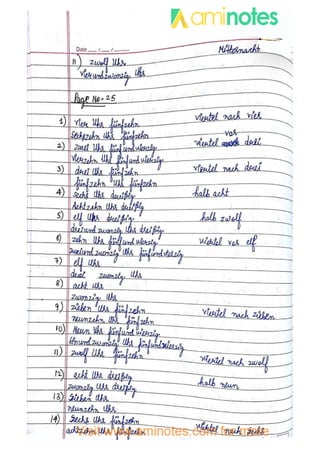 aminotes
Date
Mitternacht
11) zwölf Uhr
vierundzwanzig Uhr
Page No. 25
1) vier Uhr fünfzehn viertel nach vier
Sechzehn Uhr fünfzehn
2) zwei Uhr fünfundvierzig viertel vor drei
Vierzehn Uhr fünfundvierzig
3) drei Uhr fünfzehn viertel nach drei
fünfzehn Uhr fünfzehn
4) Uhr dreißig halb acht
Achtzehn Uhr dreißig
5) elf Uhr dreißig halb zwölf
dreiundzwanzig Uhr dreißig
6) zehn Uhr fünfundvierzig Viertel vor elf
zweiundzwanzig Uhr fünfundvierzig
7) elf Uhr
zwanzig Uhr
8) acht Uhr
zwanzig Uhr
9) sieben Uhr fünfzehn Viertel nach sieben
neunzehn Uhr fünfzehn
10) Neun Uhr fünfundvierzig
einundzwanzig Uhr fünfundvierzig
11) zwölf Uhr fünfzehn viertel nach zwölf
12) acht Uhr dreißig halb neun
zwanzig Uhr dreißig
13) Sieben Uhr
neunzehn Uhr
14) Sechs Uhr fünfzehn viertel nach sechs
achtzehn Uhr fünfzehn